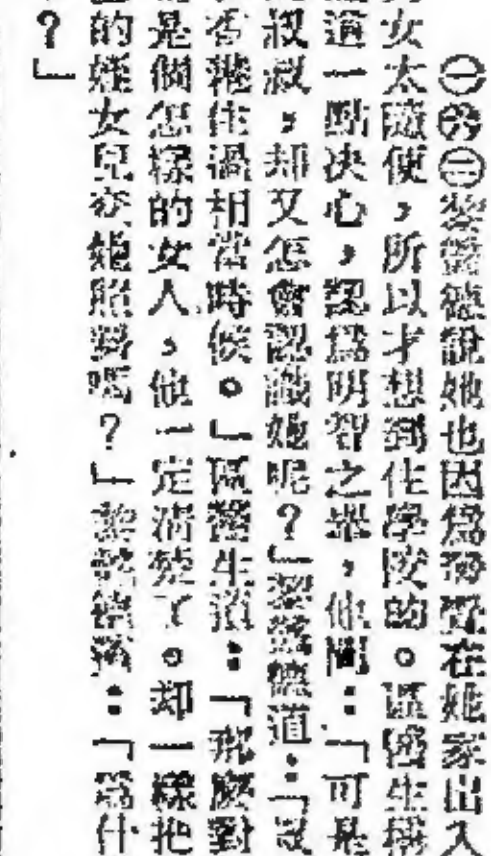 ㊀㊅㊁黎錦德說她也因爲發覺在她家出入
女太隨便,所以才想到住學校的。區醫生
道一點决心,認爲明智之舉,他問:「可是
叔叔,却又怎會認識她呢?」黎錦德道:「
香港住過相當時候。」區醫生道:「那麽對
是個怎樣的女人,他一定清楚了。却一樣把
的姪女兒交她照料嗎?」黎錦德道:「爲什
?」